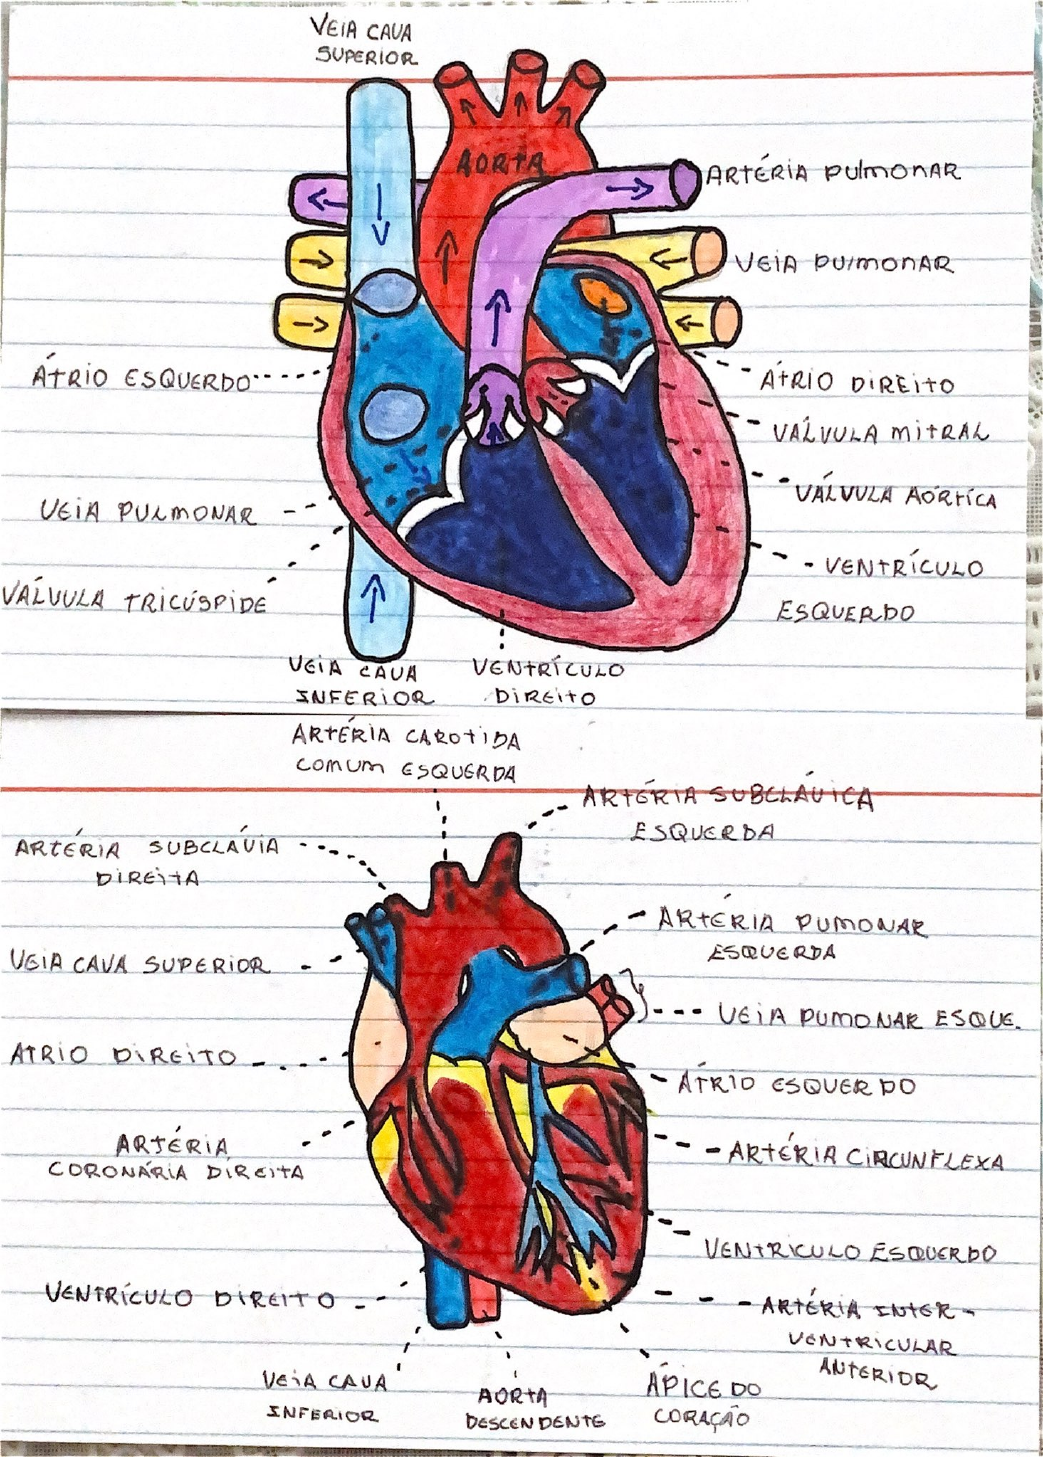 VEIA CAVA
SUPERIOR
AORTA
ARTÉRIA PULMONAR
VEIA PULMONAR
ÁTRIO ESQUERDO
ÁTRIO DIREITO
VÁLVULA MITRAL
VÁLVULA AÓRTICA
VEIA PULMONAR
VENTRÍCULO
ESQUERDO
VÁLVULA TRICÚSPIDE
VEIA CAVA
INFERIOR
VENTRÍCULO
DIREITO
ARTÉRIA CAROTIDA
COMUM ESQUERDA
ARTÉRIA SUBCLÁVICA
ESQUERDA
ARTÉRIA SUBCLÁVIA
DIREITA
ARTÉRIA PUMONAR
ESQUERDA
VEIA CAVA SUPERIOR
VEIA PUMONAR ESQUE.
ATRIO DIREITO
ÁTRIO ESQUERDO
ARTÉRIA
CORONÁRIA DIREITA
ARTÉRIA CIRCUNFLEXA
VENTRICULO ESQUERDO
VENTRÍCULO DIREITO
ARTÉRIA INTER-
VENTRICULAR
ANTERIOR
VEIA CAVA
INFERIOR
AORTA
DESCENDENTE
ÁPICE DO
CORAÇÃO